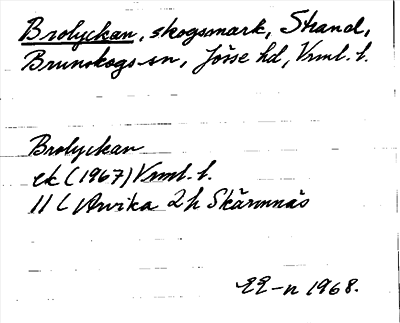 Brolyckan, skogsmark, Strand,
Brunskogs sn, Jösse hd, Vrml. l.
Brolyckan
ek (1967) Vrml. l.
11 C Arvika 2 h Skärmnäs
EE-n 1968.